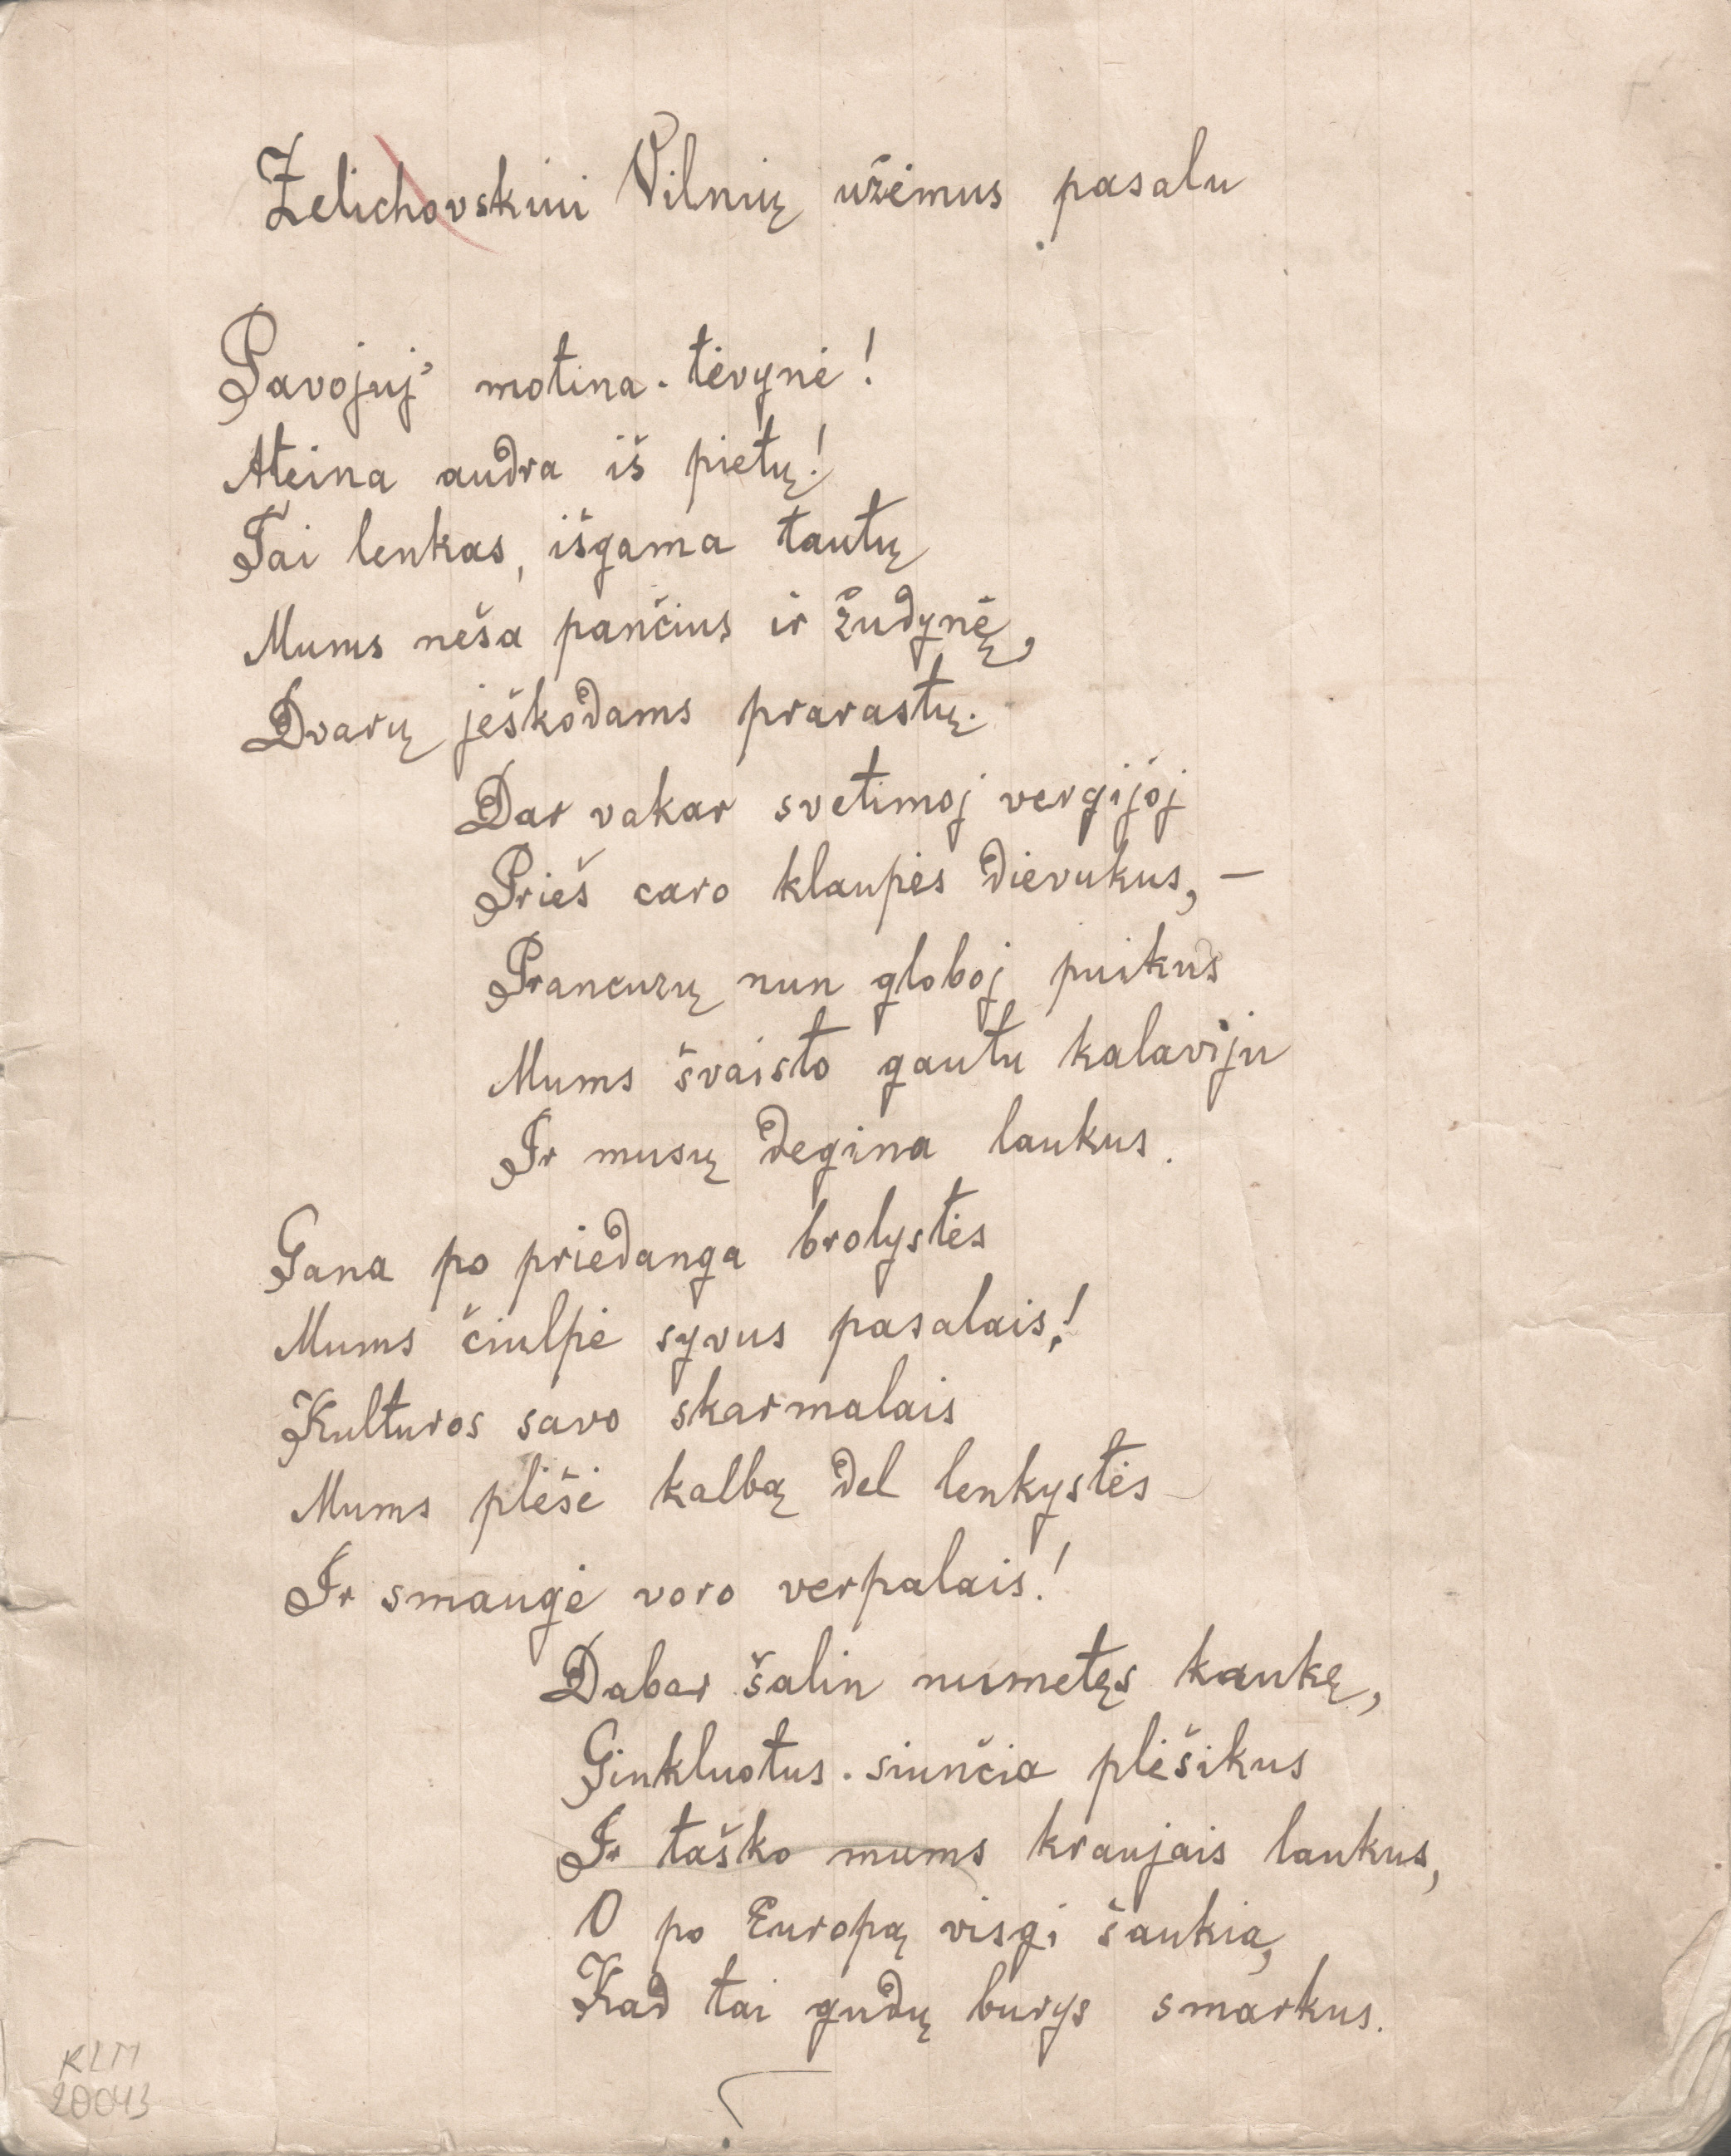 Želichovskiui Vilnių užėmus pasalu
Pavojuj' motina-tėvynė!
Ateina audra iš pietų!
Tai lenkas, išgama tautų
Mums neša pančius ir žudynę,
Dvarų ješkodams prarastų.
Dar vakar svetimoj vergijoj
Prieš caro klaupės dievukus, —
Prancuzų nun globoj puikus
Mums švaisto gautu kalaviju
Ir musų degina laukus.
Gana po priedanga brolystės
Mums čiulpė syvus pasalais!
Kulturos savo skarmalais
Mums plėšė kalbą del lenkystės
Ir smaugė voro verpalais!
Dabar šalin numetęs kaukę,
Ginkluotus siunčia plėšikus
Ir taško mums kraujais laukus,
O po Europą visgi šaukia,
Kad tai gudų burys smarkus.
KLM
20043